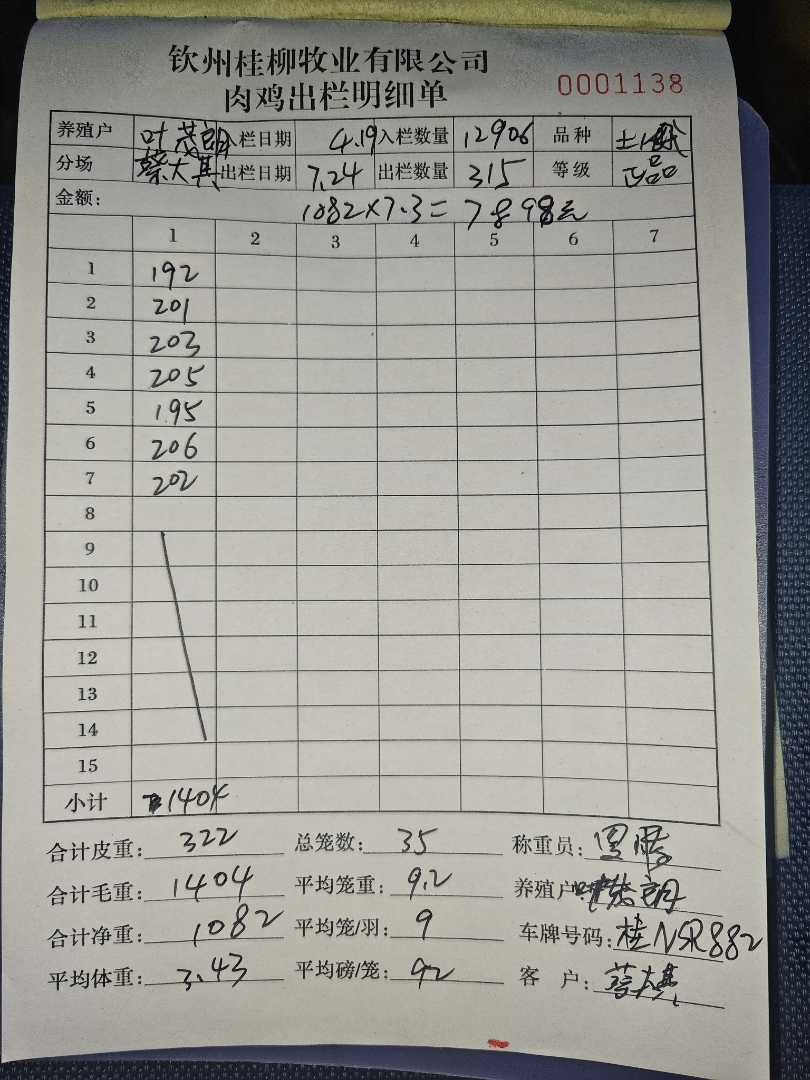 钦州桂柳牧业有限公司
肉鸡出栏明细单
0001138
养殖户 叶茂朗 入栏日期 4.19 入栏数量 12906 品种 土
分场 蔡大其 出栏日期 7.24 出栏数量 315 等级 正品
金额: 1082×7.3=7898元
1 2 3 4 5 6 7
1 192
2 201
3 203
4 205
5 195
6 206
7 202
8
9
10
11
12
13
14
15
小计 1404
合计皮重: 322 总笼数: 35 称重员:
合计毛重: 1404 平均笼重: 9.2 养殖户
合计净重: 1082 平均笼/羽: 9 车牌号码: 桂NSR882
平均体重: 3.43 平均磅/笼: 92 客户: 蔡大其